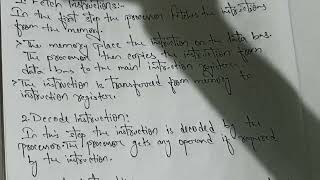 1. Fetch Instructions:-
In the first step the processor fetches the instructions
from the memory.
>The memory place the intruction on the data bus.
The processor then copies the instruction from
data bus to the main instruction register.
>The instruction is transferred from memory to
instruction register.
2. Decode Instruction:
In this step the instruction is decoded by the
processor. The processor gets any operand if required
by the instruction.